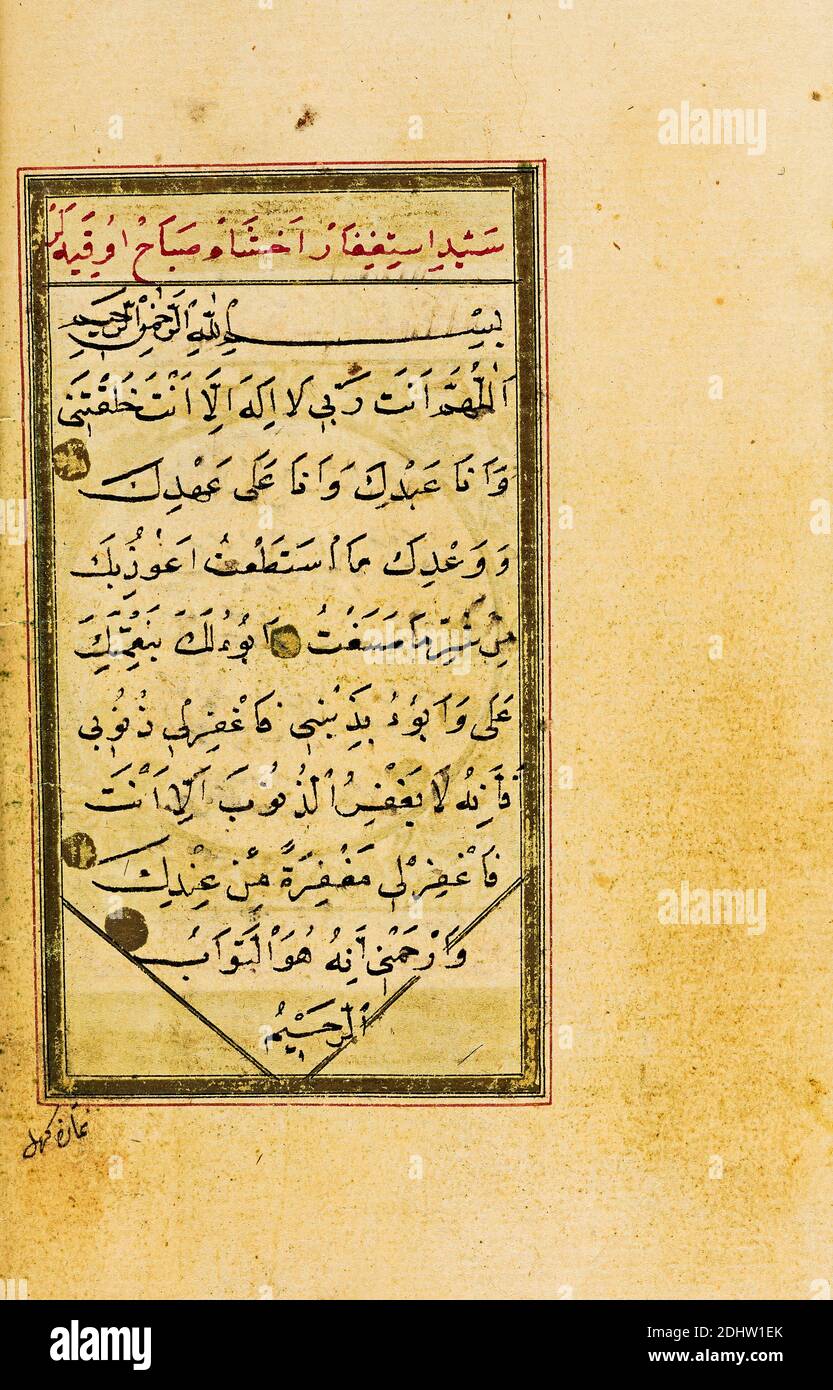 سَيِّدِ اِسْتِغْفَارْ اَخْشَامْ صَبَاحْ اوُقِيَه لَرْ
بِسْمِ اللهِ الرَّحْمٰنِ الرَّحِيمِ
اَللّٰهُمَّ اَنْتَ رَبّى لَا اِلَهَ اِلَّا اَنْتَ خَلَقْتَنِى
وَاَنَا عَبْدِكَ وَاَنَا عَلَى عَهْدِكَ
وَوَعْدِكَ مَا اسْتَطَعْتُ اَعُوْذُبِكَ
مِنْ شَرِّمَا صَنَعْتُ اَبُوءُلَكَ بِنِعْمَتِكَ
عَلَى وَاَبُوءُ بِذَنْبِى فَاغْفِرْلِى ذُنُوبِى
فَاِنَّهُ لَا يَغْفِرُ الذُنُوبَ اِلَّا اَنْتَ
فَاغْفِرْلِى مَغْفِرَةً مِنْ عِنْدِكَ
وَارْحَمْنِى اِنَّهُ هُوَ الْتَوَابُ
الرَحِيْمُ
alamy
alamy
Image ID: 2DHW1EK
www.alamy.com